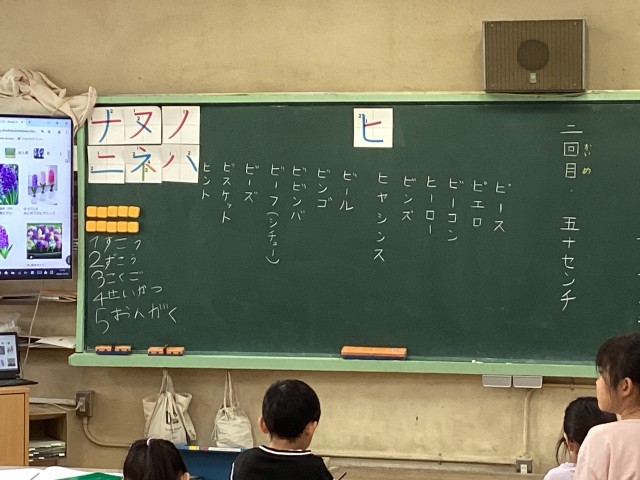 二回目.
かい
め
五十センチ
ヒ
ピース
ピエロ
ビーコン
ヒーロー
ビンズ
ヒヤシンス
ビール
ビンゴ
ビビンバ
ビーフ(シチュー)
ビーズ
ビスケット
ヒント
ナヌノ
ニネハ
2ずこう
3こくご
4せいかつ
5おんがく